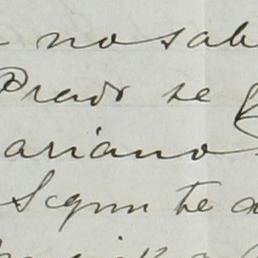 no sab
Prado se
ariano
Segun te a